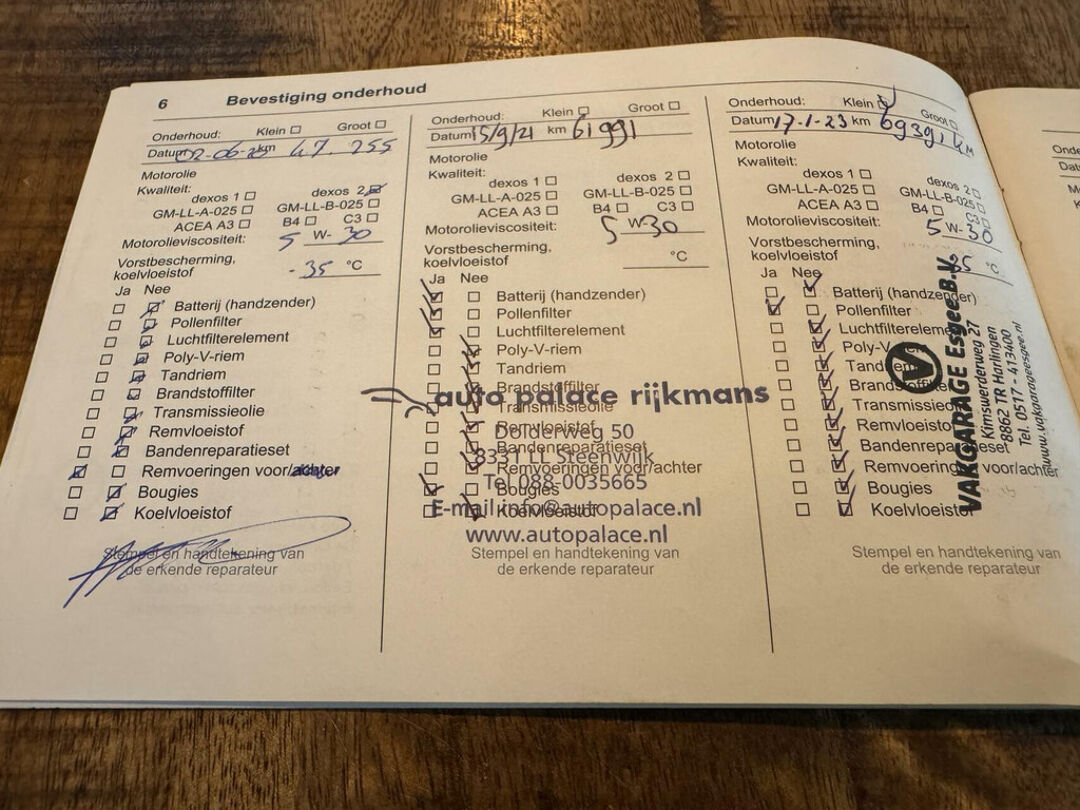 6 Bevestiging onderhoud
Onderhoud: Klein Groot
Datum 02-06-20 km 47.255
Motorolie
Kwaliteit:
dexos 1 dexos 2
GM-LL-A-025 GM-LL-B-025
ACEA A3 B4 C3
Motorolieviscositeit: 5 W- 30
Vorstbescherming,
koelvloeistof - 35 °C
Ja Nee
Batterij (handzender)
Pollenfilter
Luchtfilterelement
Poly-V-riem
Tandriem
Brandstoffilter
Transmissieolie
Remvloeistof
Bandenreparatieset
Remvoeringen voor/achter
Bougies
Koelvloeistof
Stempel en handtekening van
de erkende reparateur
Onderhoud: Klein Groot
Datum 15/9/21 km 61991
Motorolie
Kwaliteit:
dexos 1 dexos 2
GM-LL-A-025 GM-LL-B-025
ACEA A3 B4 C3
Motorolieviscositeit: 5 W-30
Vorstbescherming,
koelvloeistof °C
Ja Nee
Batterij (handzender)
Pollenfilter
Luchtfilterelement
Poly-V-riem
Tandriem
Brandstoffilter
Transmissieolie
Remvloeistof
Bandenreparatieset
Remvoeringen voor/achter
Bougies
Koelvloeistof
auto palace rijkmans
Dolderweg 50
8331 LL Steenwijk
Tel 088-0035665
E-mail info@autopalace.nl
www.autopalace.nl
Stempel en handtekening van
de erkende reparateur
Onderhoud: Klein Groot
Datum 17-1-23 km 69391 KM
Motorolie
Kwaliteit:
dexos 1 dexos 2
GM-LL-A-025 GM-LL-B-025
ACEA A3 B4 C3
Motorolieviscositeit: 5 W-30
Vorstbescherming,
koelvloeistof 35 °C
Ja Nee
Batterij (handzender)
Pollenfilter
Luchtfilterelement
Poly-V-riem
Tandriem
Brandstoffilter
Transmissieolie
Remvloeistof
Bandenreparatieset
Remvoeringen voor/achter
Bougies
Koelvloeistof
VAKGARAGE Esgee B.V.
Kimswerderweg 27
8862 TR Harlingen
Tel. 0517 - 413400
www.vakgarageesgee.nl
Stempel en handtekening van
de erkende reparateur